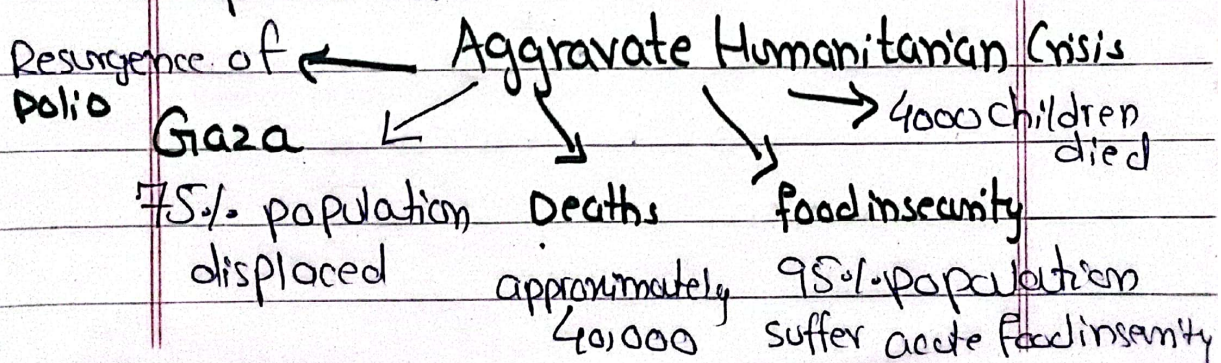 Aggravate Humanitarian Crisis
Resurgence of
polio
4000 children
died
Gaza
75% population
displaced
Deaths
approximately
40,000
food insecurity
95% population
suffer acute food insecurity